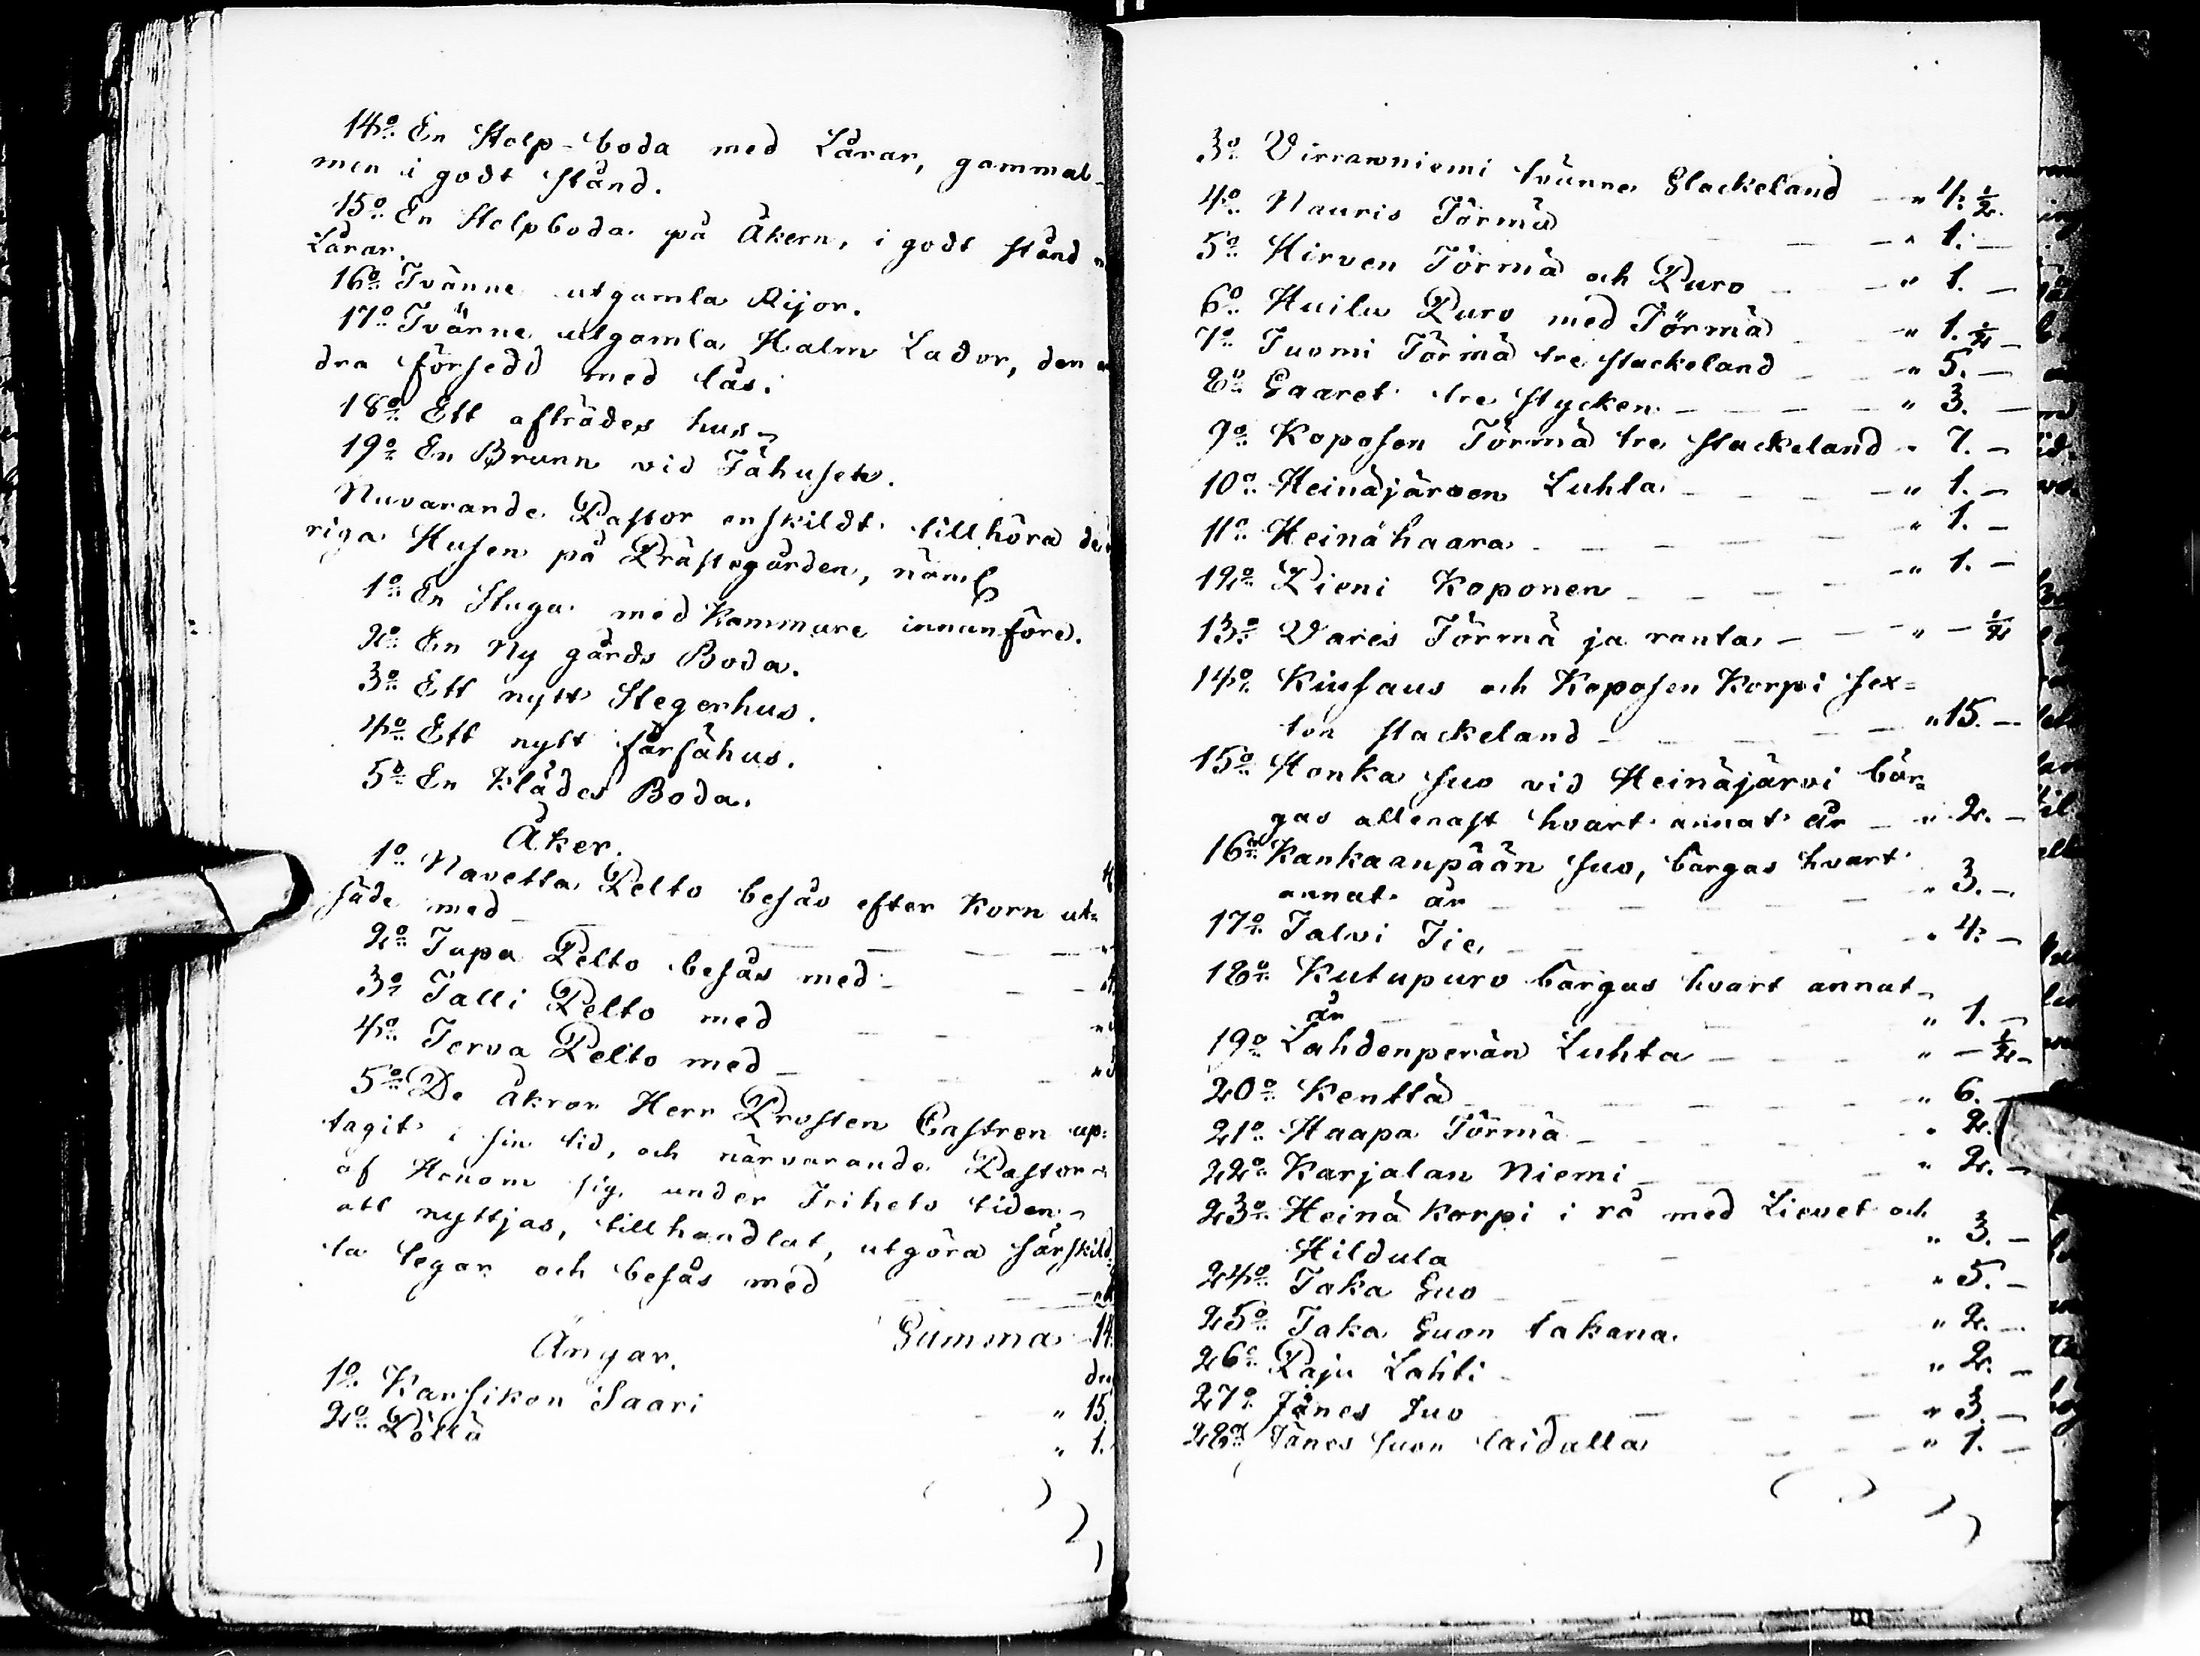 14:o En Stolp-boda med Lårar, gammal
men i godt stånd.
15:o En Stolpboda på Åkern, i godt stånd
Lårar.
16:o Tvänne utgamla Rijor.
17:o Tvänne utgamla Halm Lador, den
dra försedd med lås.
18:o Ett afträdes hus
19:o En Brunn vid Fähuset.
Nuvarande Pastor enskildt tillhöra
riga Husen på Prästegården, näml
1:o En Stuga med Kammare innanföre.
2:o En Ny gårds Boda.
3:o Ett nytt Stegerhus.
4:o Ett nytt fårfähus.
5:o En Klädes Boda.
Åker.
1:o Navetta Pelto besås efter Korn ut-
säde med
2:o Tupa Pelto besås med
3:o Talli Pelto med
4:o Terva Pelto med
5:o De åkrar Herr Prosten Castren up-
tagit i sin tid, och närvarande Pastor
af Honom sig under Frihets tiden
att nyttjas, tillhandlat, utgöra särskild-
ta tegar och besås med
Summa 14.
Ängar.
1:o Karsikon Saari " 15.
2:o Pöllä " 1.
3:o Virrawniemi tvänne Stackeland " 4. ½.
4:o Nauris Törmä " 1. —
5:o Hirven Törmä och Puro " 1. —
6:o Huilu Puro med Törmä " 1. ½ —
7:o Tuomi Törmä tre stackeland " 5. —
8:o Saaret tre stycken " 3. —
9:o Koposen Törmä tre stackeland " 7. —
10:o Heinäjärven Luhta " 1. —
11:o Heinähaara " 1. —
12:o Pieni Koponen " 1. —
13:o Vares Törmä ja ranta " — ½
14:o Kiusaus och Koposen Korpi sex-
ton stackeland " 15. —
15:o Honka suo vid Heinäjärvi bär-
gas allenast hvart annat år " 2. —
16:o Kankaanpään suo, bärgas hvart
annat år " 3. —
17:o Talvi Tie " 4. —
18:o Kutupuro bärgas hvart annat
år " 1. —
19:o Lahdenperän Luhta " — ½ —
20:o Kenttä " 6. —
21:o Haapa Törmä " 2.
22:o Karjalan Niemi " 2. —
23:o Heinä Korpi i rå med Lievet och
Hildula " 3. —
24:o Taka Suo " 5. —
25:o Taka Suon takana " 2. —
26:o Paju Lahti " 2. —
27:o Jänes Suo " 3. —
28:o Jänes suon laidalla " 1. —